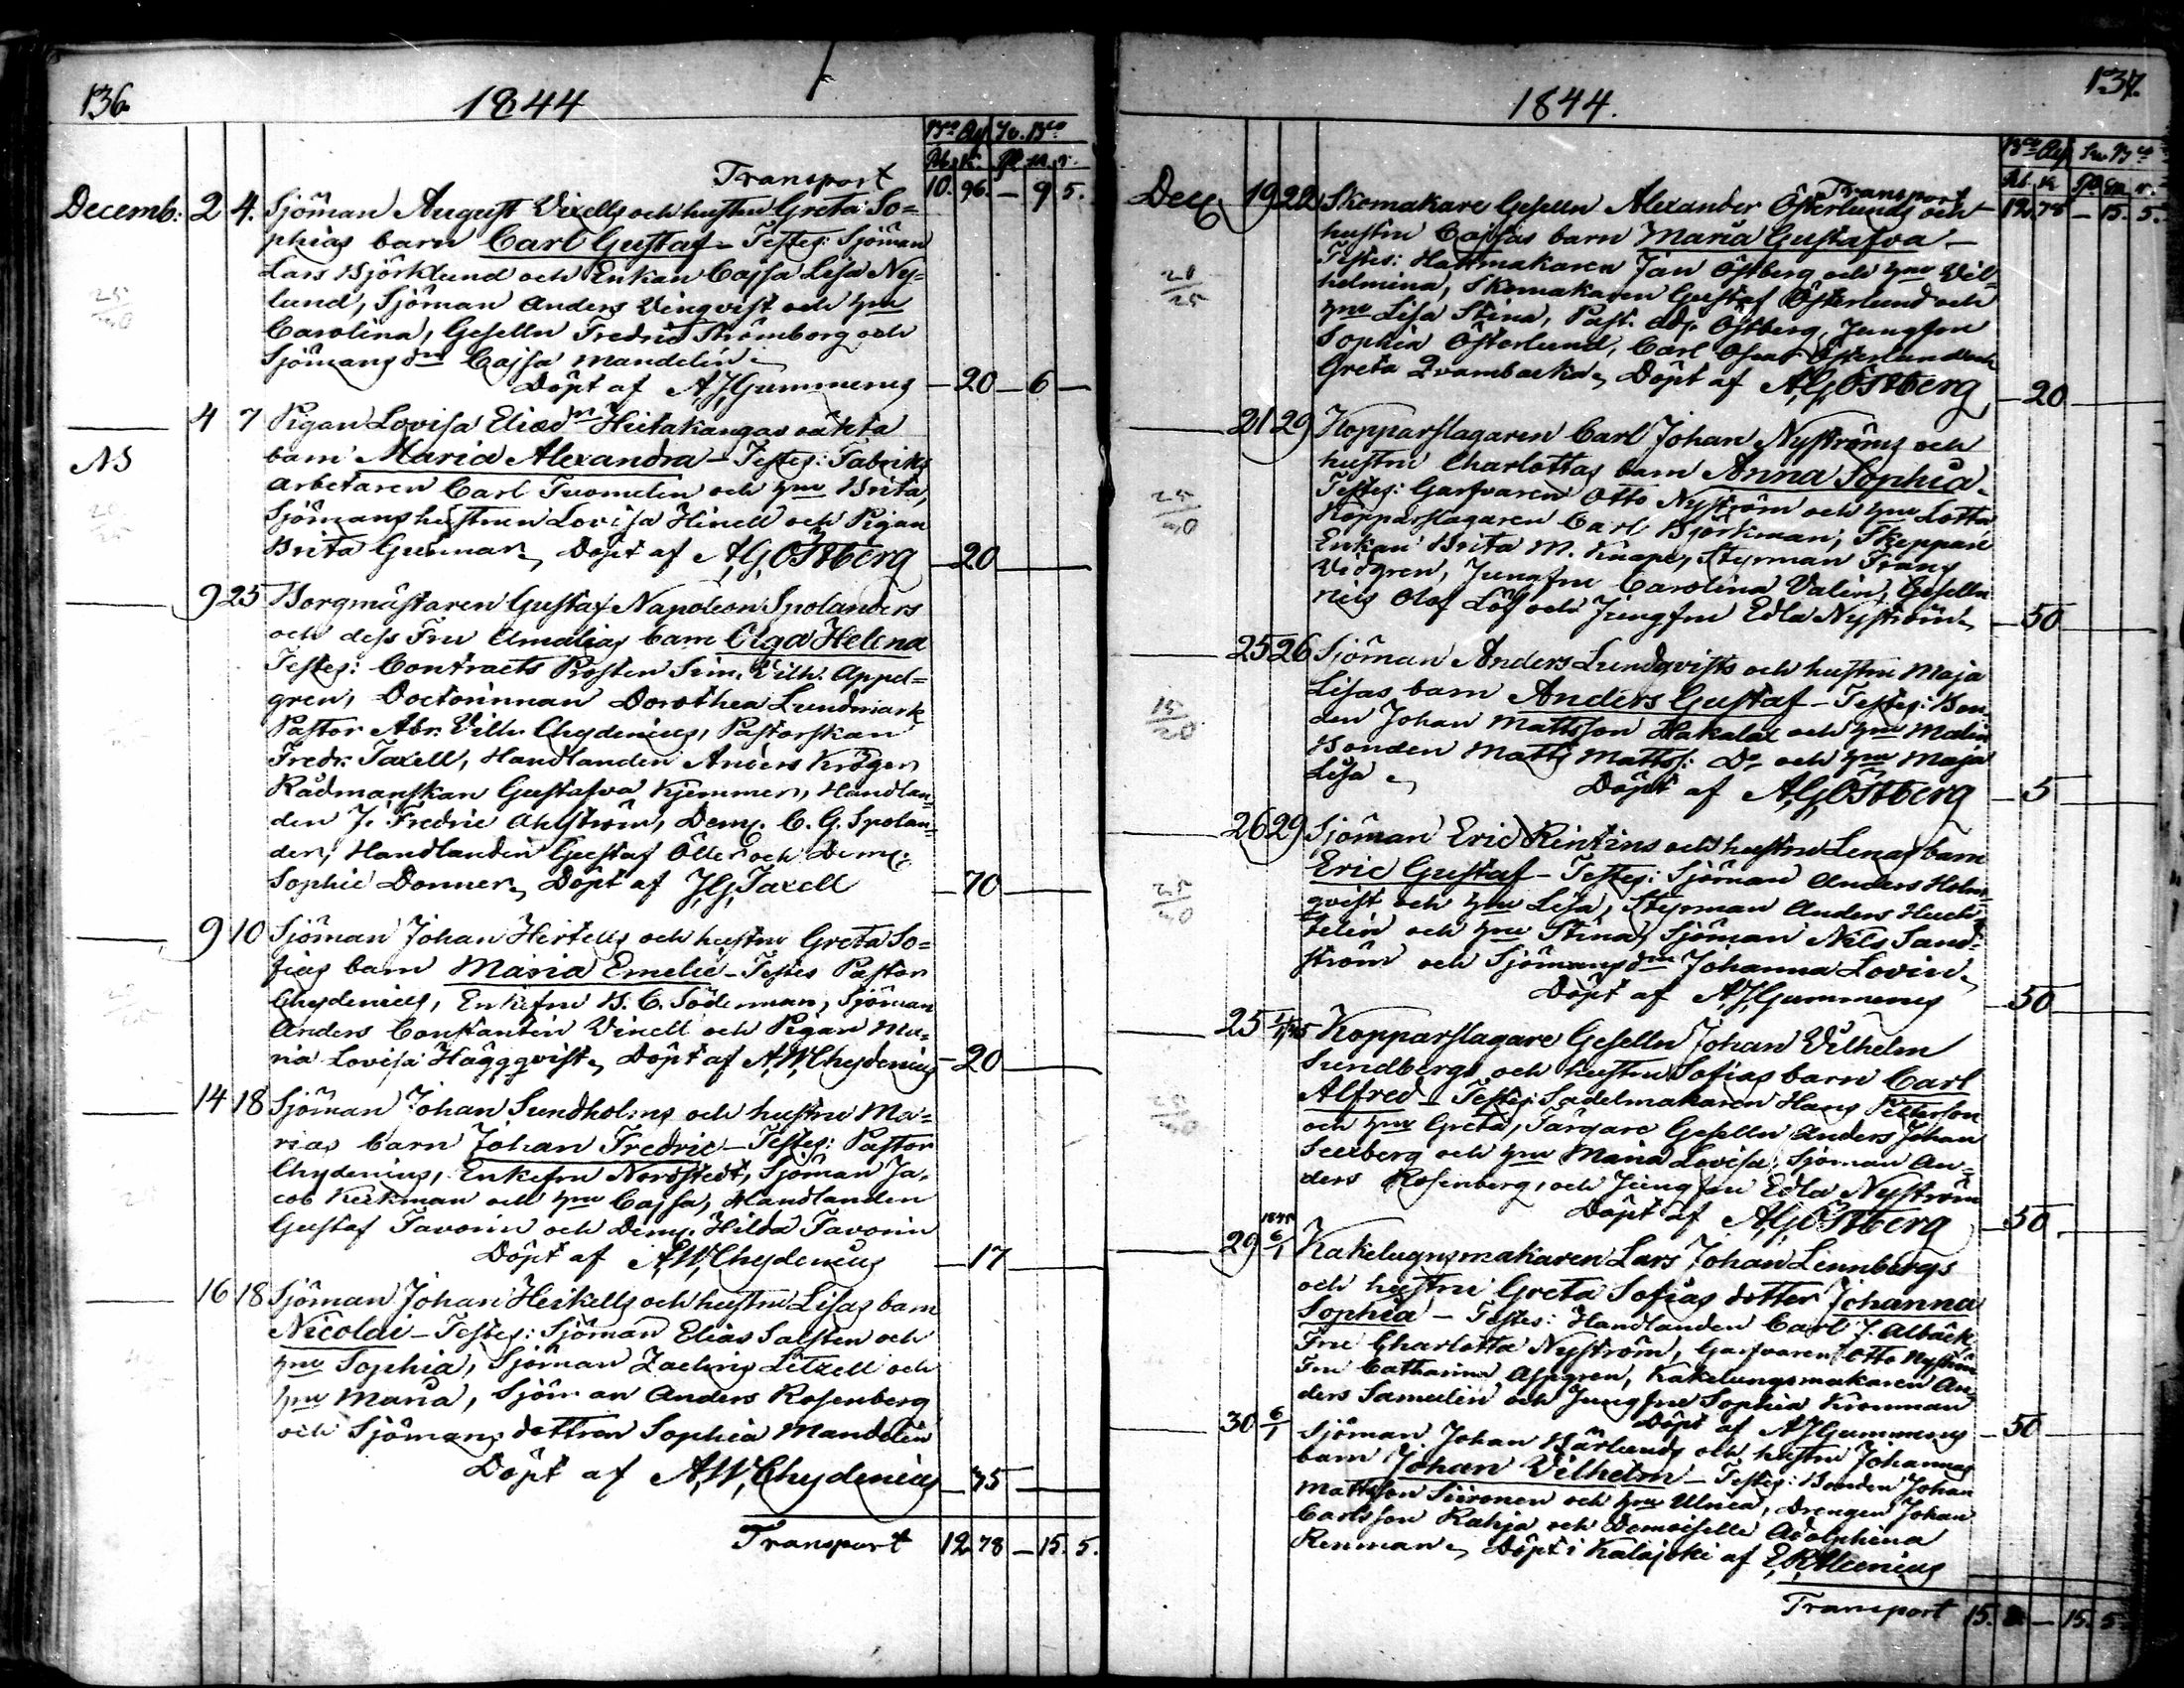 136.
1844
Bco Ass. Sv. Bco
Rb. k. Rd. sk. r.
Transport 10. 96. — 9 5.
Decemb: 2 4. Sjöman August Vixells och hustru Greta So=
phias barn Carl Gustaf – Testes: Sjöman
Lars Björklund och Enkan Cajsa Lisa Ny=
lund, Sjöman Anders Vinqvist och hnu
Carolina, Gesellen Fredric Strömborg och
Sjömans dn Cajsa Mandelin
Döpt af A,J,Gummerus — 20 — 6 —
4 7 Pigan Lovisa Eliæ dr Hietakangas oäkta
NS
barn Maria Alexandra – Testes: Fabriks
arbetaren Carl Tuomelin och hnu Brita,
Sjömanshustrun Lovisa Hinell och Pigan
Brita Gunnar, Döpt af A,G,Östberg — 20
9 25 Borgmästaren Gustaf Napoleon Spolanders
och dess Fru Amalias barn Olga Helena
Testes: Contracts Prosten Sim. Vilh. Appel=
gren, Doctorinnan Dorothea Lundmark
Pastor Abr. Vilh. Chydenius, Pastorskan
Fredr. Taxell, Handlanden Anders Kröger
Rådmanskan Gustafva Kjemmer, Handlan=
den J. Fredric Ahlström, Dem. C. G. Spolan=
der, Handlanden Gustaf Öller och Dem.
Sophie Donner, Döpt af J,G,Taxell — 70
9 10 Sjöman Johan Hertells och hustru Greta So=
fias barn Maria Emelie – Testes Pastor
Chydenius, Enkefru B. C. Söderman, Sjöman
Anders Constantin Vixell och Pigan Ma=
ria Lovisa Häggqvist, Döpt af A,W,Chydenius — 20
14 18 Sjöman Johan Sundholms och hustru Ma=
rias barn Johan Fredric – Testes: Pastor
Chydenius, Enkefru Nordstedt, Sjöman Ja=
cob Kerkman och hnu Cajsa, Handlanden
Gustaf Favorin och Dem. Hilda Favorin
Döpt af A,W,Chydenius — 17
16 18 Sjöman Johan Heikells och hustru Lisas barn
Nicolai – Testes: Sjöman Elias Salsten och
hnu Sophia, Sjöman Zachris Litzell och
hnu Maria, Sjöman Anders Rosenberg
och Sjömans dottren Sophia Mandelin
Döpt af A,W,Chydenius — 35
Transport 12 78 — 15. 5.
137.
1844.
Bco Ass Sv. Bco
Transport 12. 78 — 15. 5.
Dec. 19 22 Skomakare Gesellen Alexander Österlunds och
hustru Cajsas barn Maria Gustafva –
Testes: Hattmakaren Jan Östberg och hnu Vil=
helmina, Skomakaren Gustaf Österlund och
hnu Lisa Stina, Past. Adj. Östberg, Jungfru
Sophia Österlund, Carl Oscar Österlund och
Greta Qvambacka, Döpt af A,G,Östberg — 20
21 29 Kopparslagaren Carl Johan Nyströms och
hustru Charlottas barn Anna Sophia.
Testes: Garfvaren Otto Nyström och hnu Lotta,
Kopparslagaren Carl Björkman, Skeppare
Enkan Brita M. Knape, Styrman Frans
Vidgren, Jungfru Carolina Valin, Gesellen
Nils Olof Löf och Jungfru Edla Nyström — 50
25 26 Sjöman Anders Lundqvists och hustru Maja
Lisas barn Anders Gustaf – Testes: Bon=
den Johan Mattsson Hakala och hnu Malin
Bonden Matts Matts: Do och hnu Maja
Lisa Döpt af A,G,Östberg — 5
26 29 Sjöman Eric Rintins och hustru Lenas barn
Eric Gustaf – Testes: Sjöman Anders Holm=
qvist och hnu Lisa, Styrman Anders Huch=
telin och hnu Stina, Sjöman Nils Sand=
ström och Sjömans dn Johanna Lovin
Döpt af A,J,Gummerus — 50
25 1/1 45 Kopparslagare Gesellen Johan Vilhelm
Sundbergs och hustru Sofias barn Carl
Alfred – Testes: Sadelmakaren Hans Petterson
och hnu Greta, Färgare Gesellen Anders Johan
Seeberg och hnu Maria Lovisa, Sjöman An=
ders Rosenberg, och Jungfru Edla Nyström
Döpt af A,G,Östberg — 50
1845
29 6/1 Kakelugnsmakaren Lars Johan Lennbergs
och hustru Greta Sofias dotter Johanna
Sophia – Testes: Handlanden Carl J. Albäck
Fru Charlotta Nyström, Garfvaren Otto Nyström
Fru Catharina Aspgren, Kakelungsmakaren An=
ders Samulin och Jungfru Sophia Kronman
Döpt af A,J,Gummerus — 50
30 6/1 Sjöman Johan Härlunds och hustru Johannas
barn Johan Vilhelm – Testes: Bonden Johan
Mattsson Siironen och hnu Ulrica, Drengen Johan
Carlsson Rahja och Demoiselle Adolphina
Renman, Döpt i Kalajoki af E,R,Alcenius
Transport 15. — 15. 5.